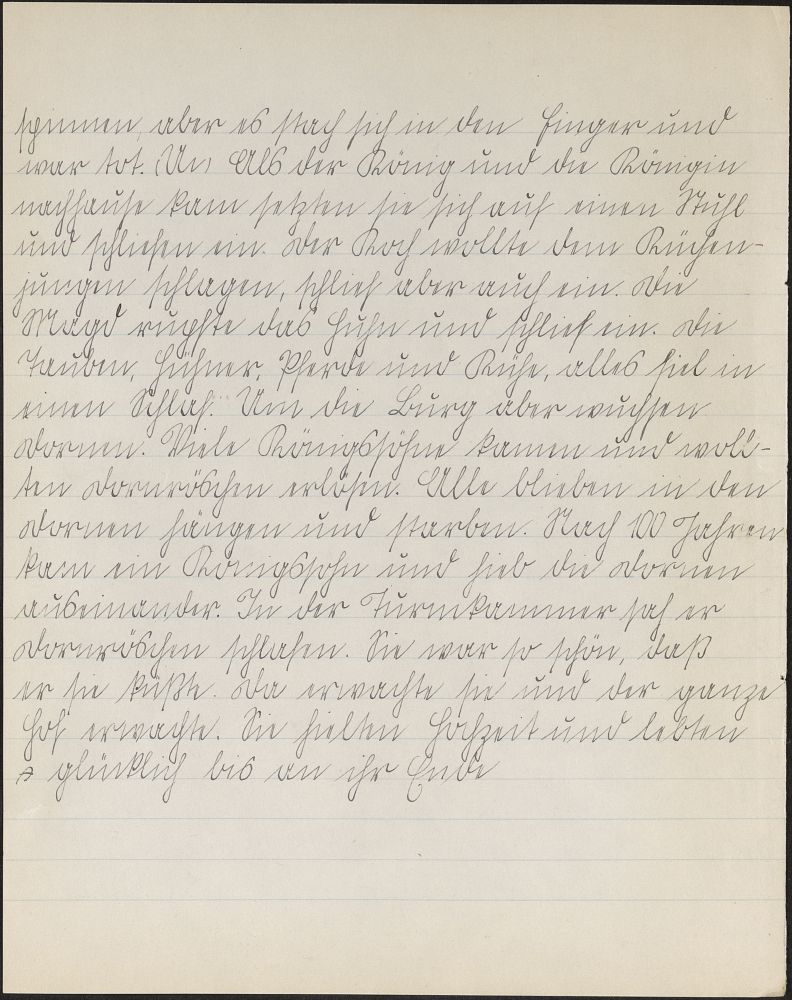 spinnen, aber es stach sich in den Finger und
war tot. (Un) Als der König und die Königin
nachhause kam setzten sie sich auf einen Stuhl
und schliefen ein. Der Koch wollte dem Küchen-
jungen schlagen, schlief aber auch ein. Die
Magd rupfte das Huhn und schlief ein. Die
Tauben, Hühner, Pferde und Kühe, alles fiel in
einen Schlaf. Um die Burg aber wuchsen
Dornen. Viele Königssöhne kamen und woll-
ten Dornröschen erlösen. Alle blieben in den
Dornen hängen und starben. Nach 100 Jahren
kam ein Königssohn und hieb die Dornen
auseinander. In der Turmkammer sah er
Dornröschen schlafen. Sie war so schön, daß
er sie küßte. Da erwachte sie und der ganze
Hof erwachte. Sie hielten Hochzeit und lebten
glücklich bis an ihr Ende